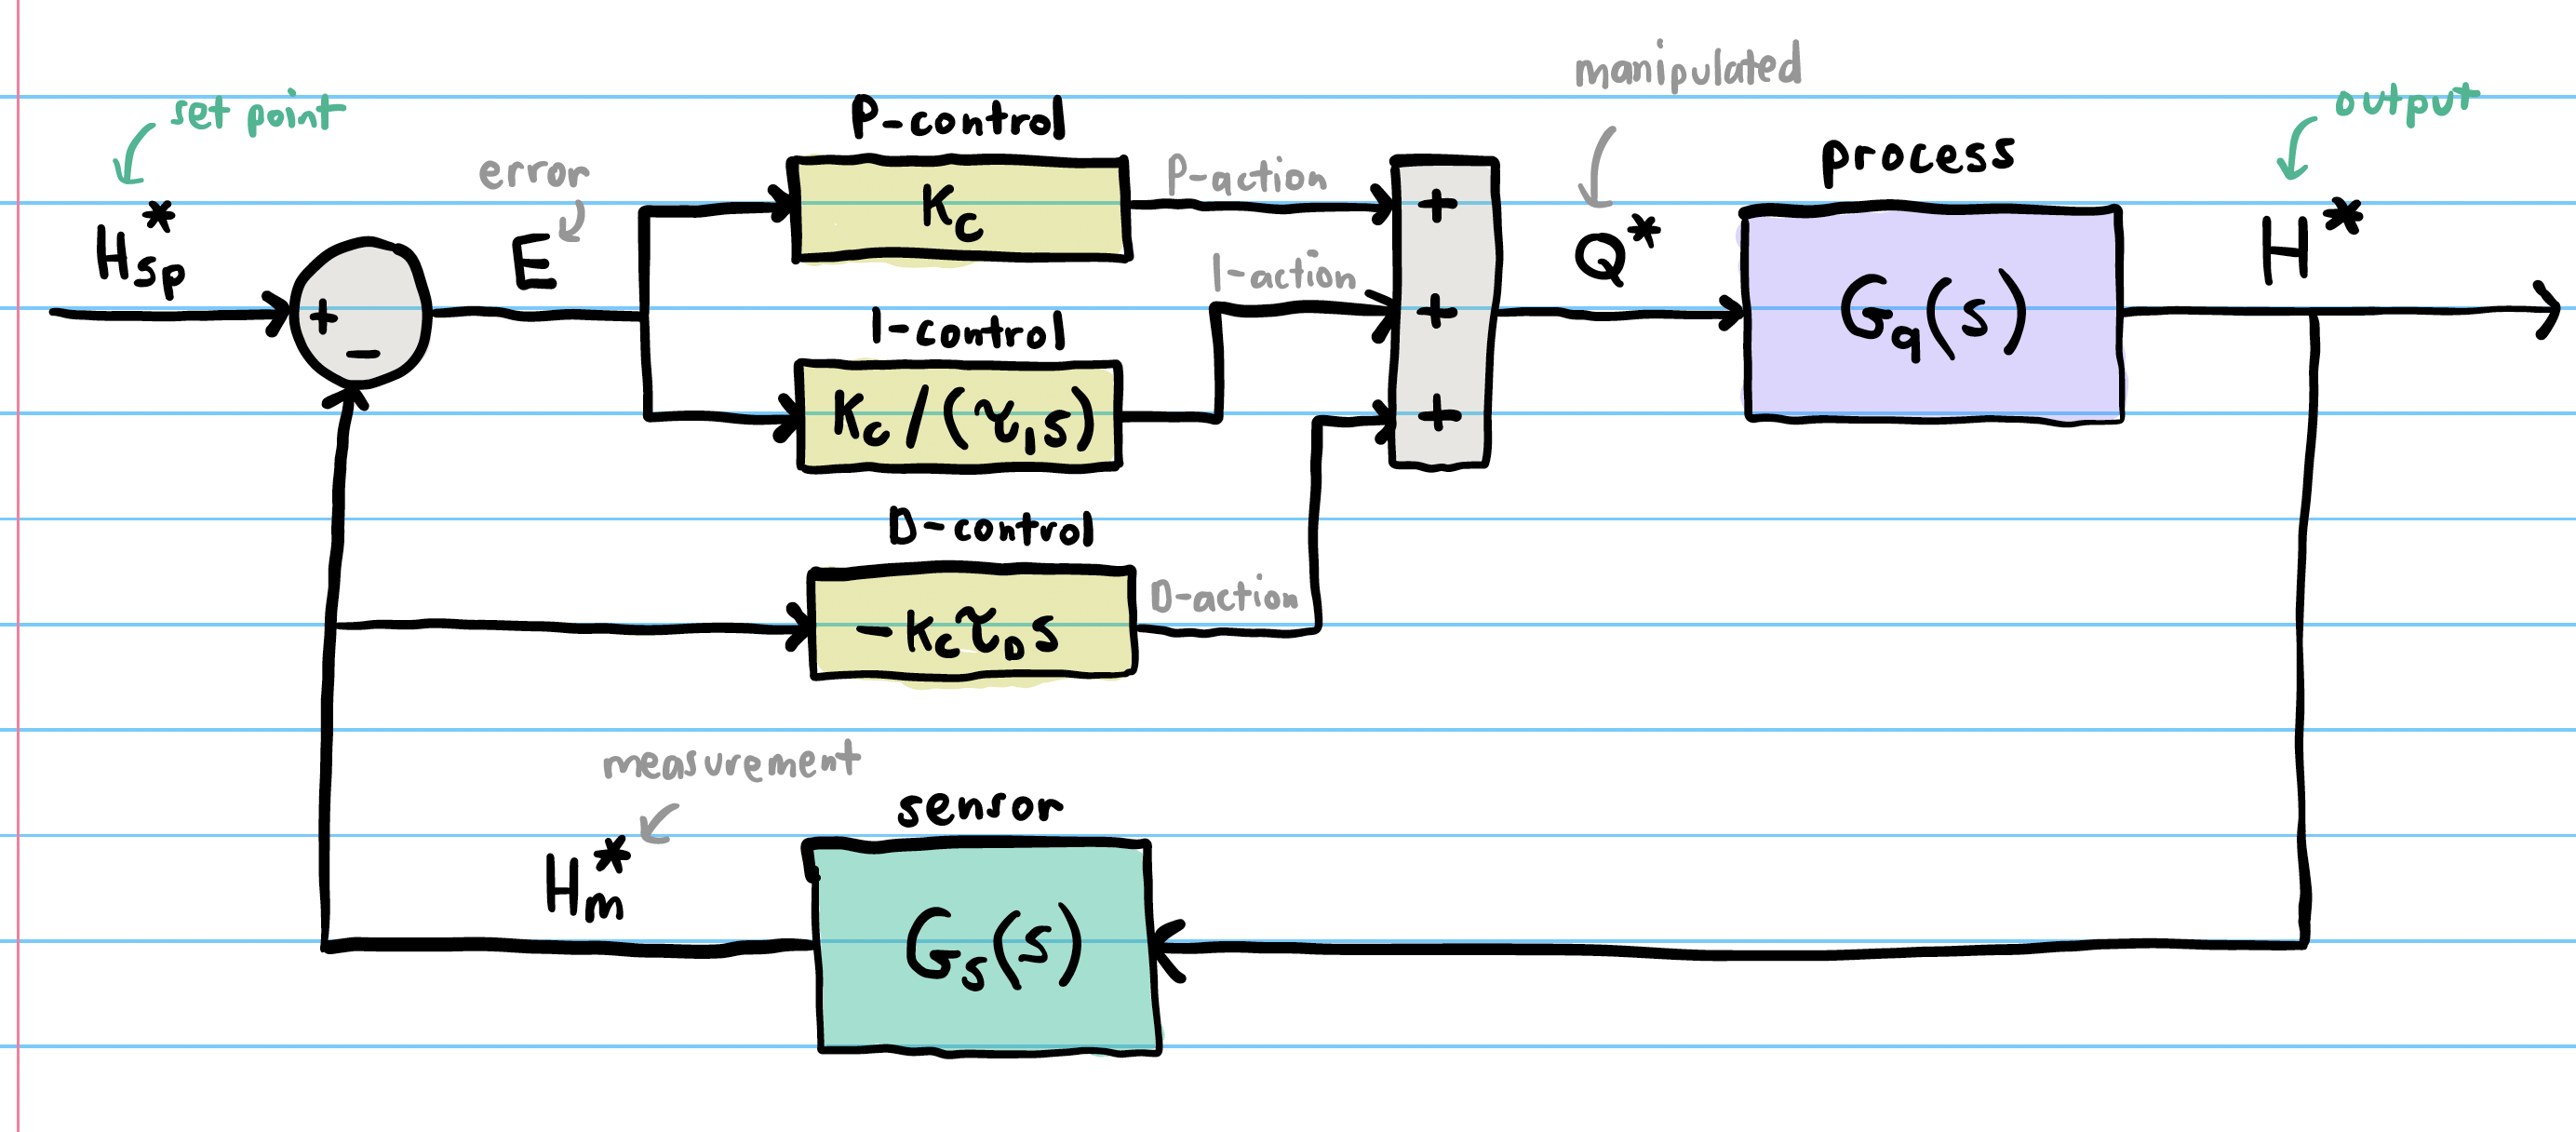 set point
H*sp
error
E
+
−
P-control
Kc
P-action
I-control
Kc/(τIs)
I-action
D-control
-KcτDs
D-action
+
+
+
manipulated
Q*
process
Gq(s)
output
H*
measurement
H*m
sensor
Gs(s)